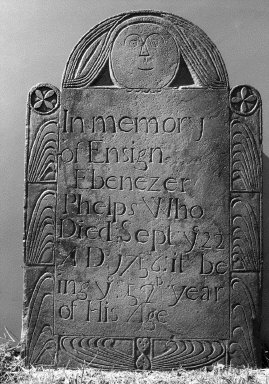 In memory
of Ensign
Ebenezer
Phelps Who
Died Sept y 22
A D 1756 it be
ing ys 52d year
of His Age